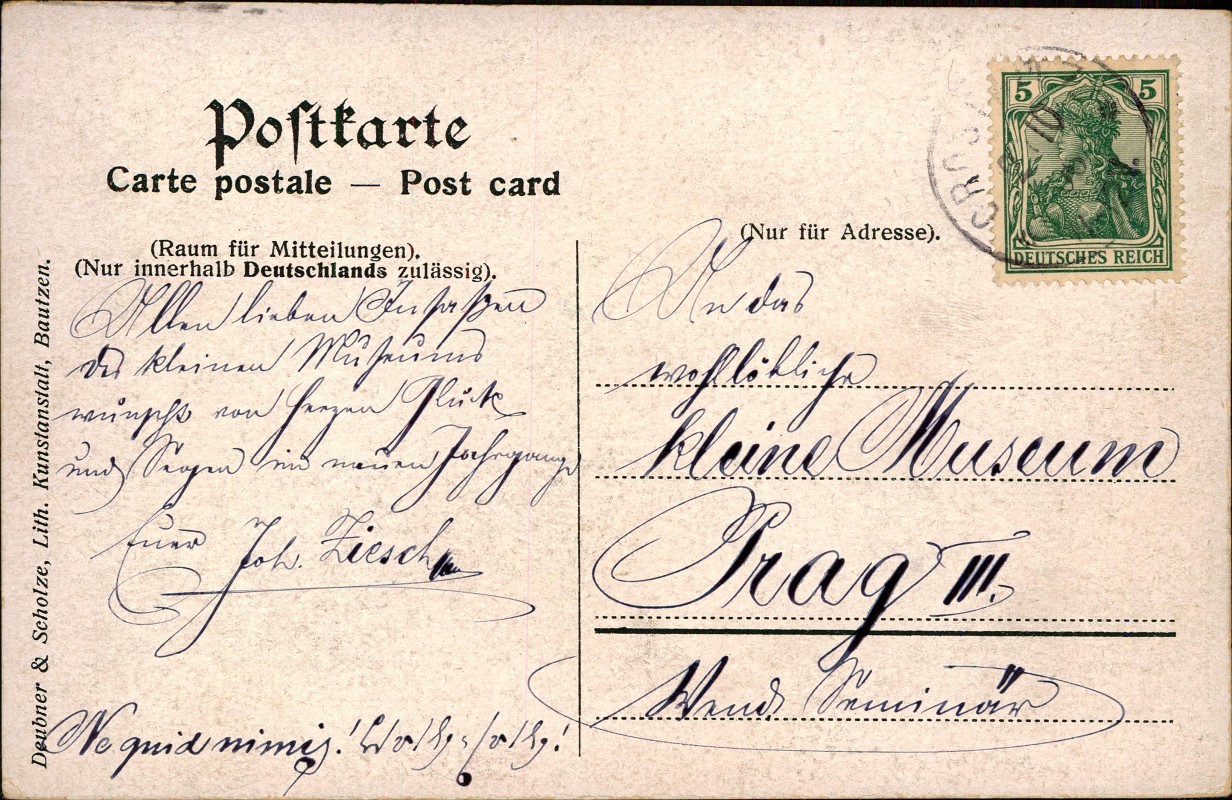 Postkarte
Carte postale — Post card
(Raum für Mitteilungen).
(Nur innerhalb Deutschlands zulässig).
(Nur für Adresse).
Deubner & Scholze, Lith. Kunstanstalt, Bautzen.
5 5
DEUTSCHES REICH
CROS
Allen lieben Insaßen
des kleinen Museums
wünscht von Herzen Glück
und Segen im neuen Jahrgange
Euer Joh. Ziesch
Ne quid nimis!
An das
wohllöbliche
kleine Museum
Prag III.
Wend. Seminär